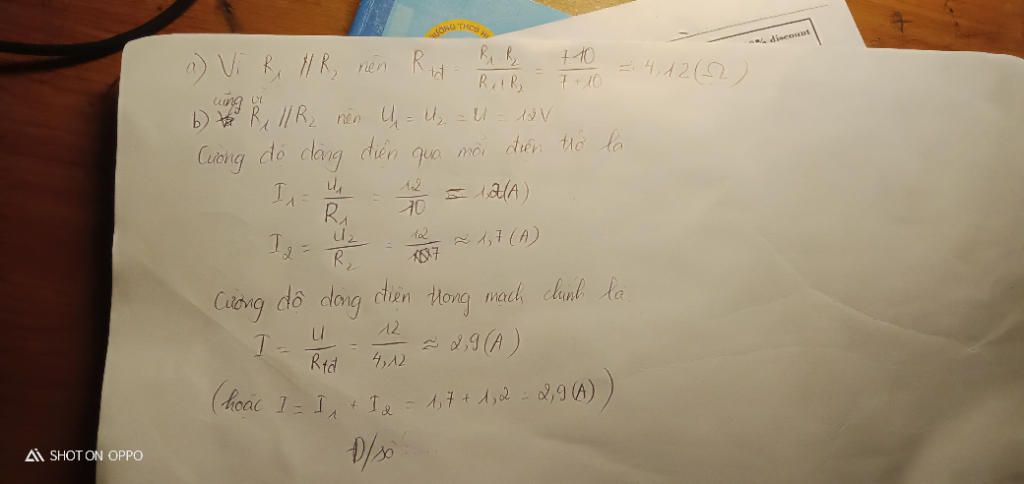 ƯỜNG THCS
% discount
a) Vì R₁ // R₂ nên R_tđ = R₁·R₂ / R₁+R₂ = 7·10 / 7+10 ≈ 4,12 (Ω)
cũng vì
b) R₁ // R₂ nên U₁ = U₂ = U = 12V
Cường độ dòng điện qua mỗi điện trở là
I₁ = U₁ / R₁ = 12 / 10 = 1,2 (A)
I₂ = U₂ / R₂ = 12 / 7 ≈ 1,7 (A)
Cường độ dòng điện trong mạch chính là
I = U / R_tđ = 12 / 4,12 ≈ 2,9 (A)
(hoặc I = I₁ + I₂ = 1,7 + 1,2 = 2,9 (A))
Đ/số
SHOT ON OPPO